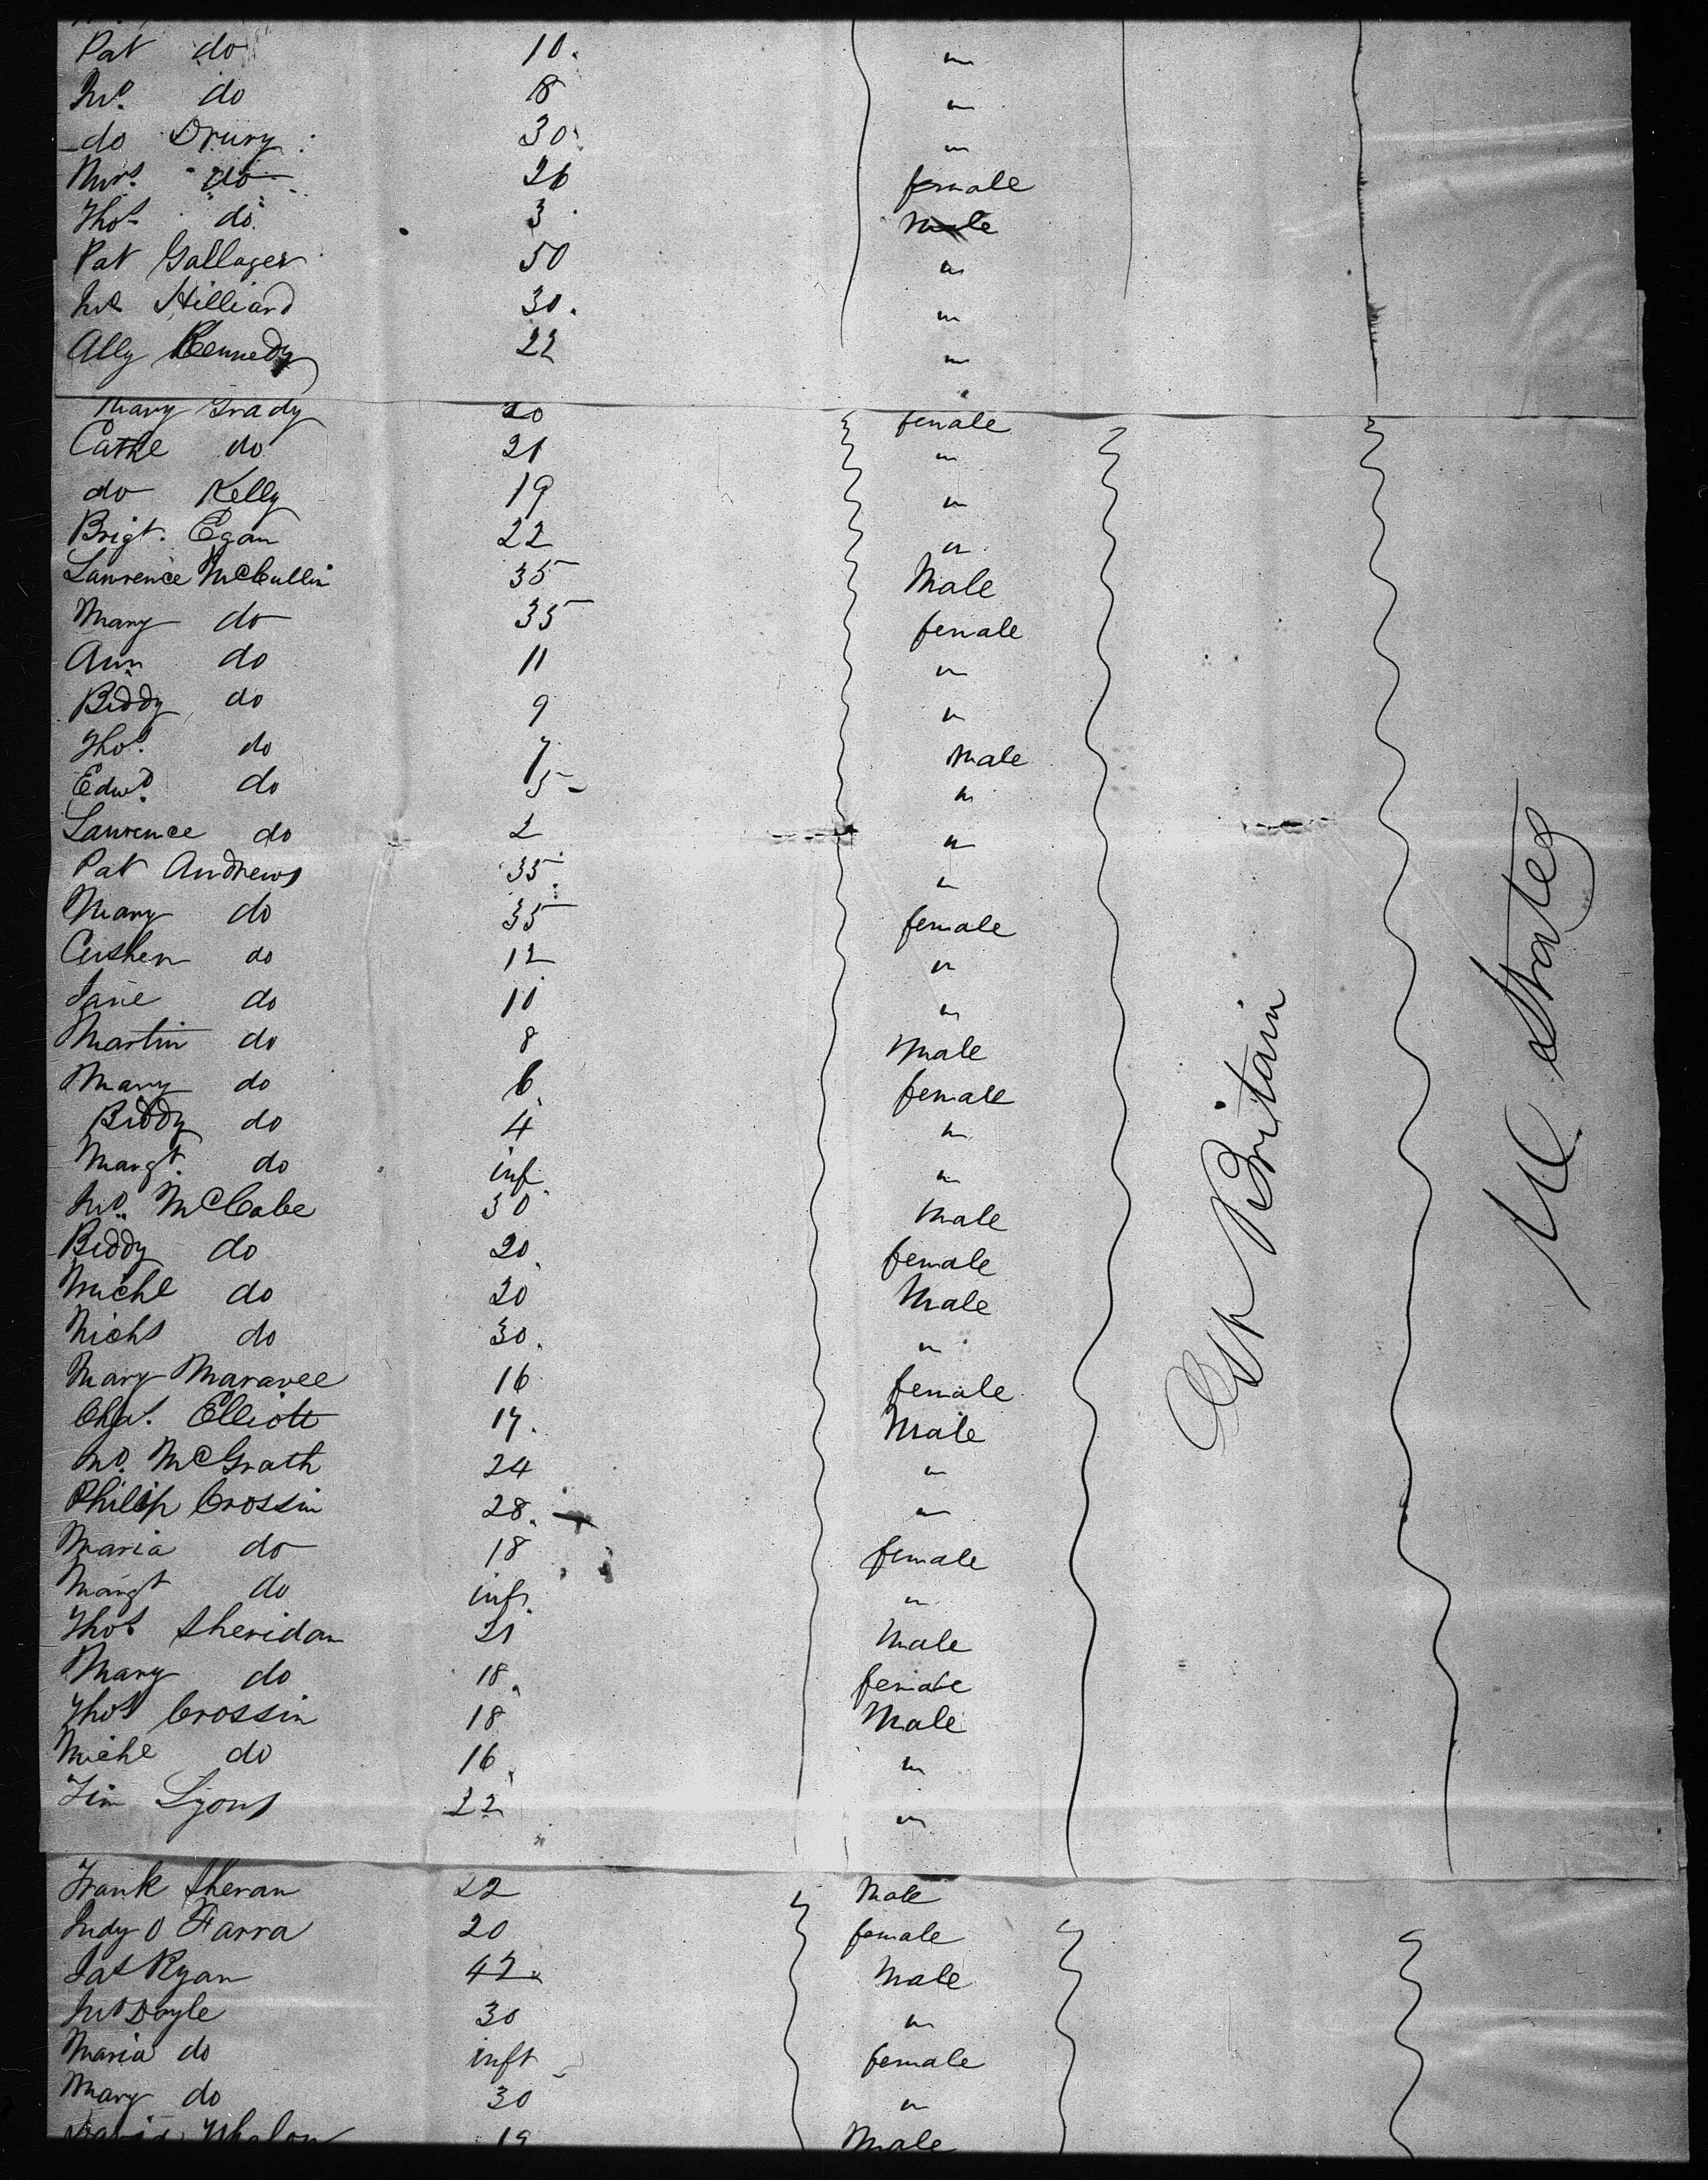 Pat do 10. "
Jno. do 8 "
do Drury 30 "
Mrs. do 26 female
Thos. do 3 male
Pat Gallager 50 "
Jno Hilliard 30. "
Ally Kennedy 22 "
Mary Grady 20 female
Cathe do 21 "
do Kelly 19 "
Brigt. Egan 22 "
Lawrence McCullin 35 Male
Mary do 35 female
Ann do 11 "
Biddy do 9 "
Thos. do 7 Male
Edwd. do 5 "
Lawrence do 2 "
Pat Andrews 35 "
Mary do 35 female
do 12 "
Jane do 10 "
Martin do 8 Male
Mary do 6 female
Biddy do 4 "
Margt. do inf "
Jno. McCabe 30 Male
Biddy do 20 female
Michl do 20 Male
Nichs do 30. "
Mary Maravee 16 female
Chas. Elliott 17. Male
Jno. McGrath 24 "
Philip Crossin 28. "
Maria do 18 female
Margt do inft. "
Thos. Sheridan 21 Male
Mary do 18. female
Thos Crossin 18 Male
Michl do 16. "
Tim Lyons 22 "
Frank Sheran 22 Male
Judy O Farra 20 female
Jas Ryan 42 Male
Jno Doyle 30 "
Maria do inft female
Mary do 30 "
David Whalon 19 Male
Gt Britain
U States